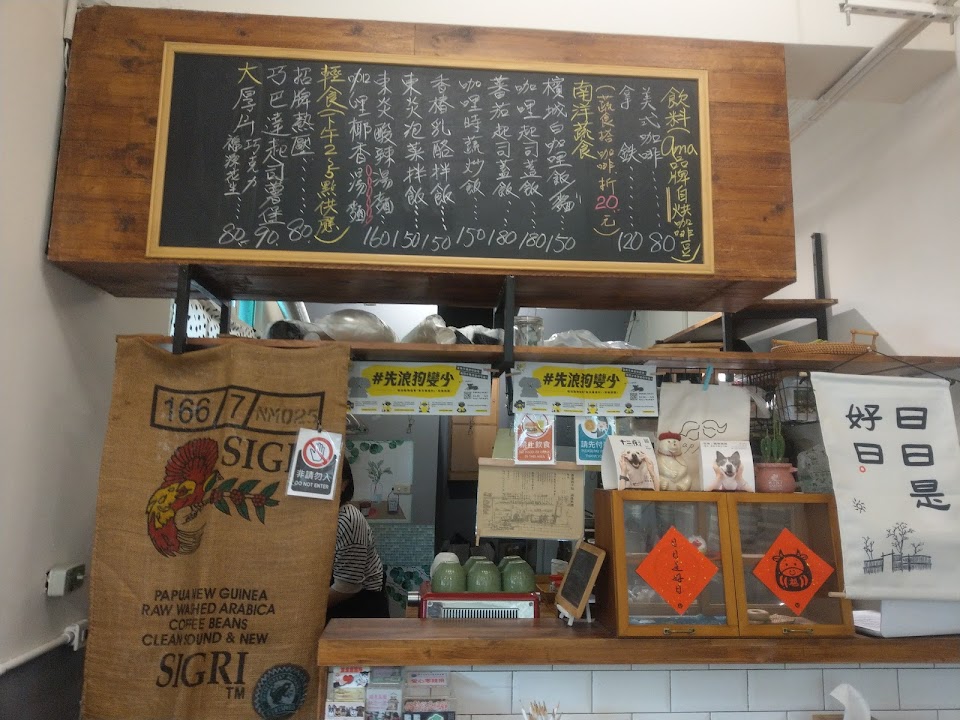 飲料(ama品牌自烘咖啡豆)
美式咖啡......80
拿鐵......120
(蔬食搭咖啡折20元)
南洋蔬食
檳城白咖哩飯/麵150
咖哩起司蓋飯...180
蕃茄起司蓋飯...180
咖哩時蔬炒飯...150
香椿乳酪拌飯...150
東炎泡菜拌飯...150
東炎酸辣湯麵
咖哩椰香湯麵 160
輕食(下午2~5點供應)
招牌熱壓......80
巧巴達起司薯堡90
大厚片 巧克力 花生...80
#先浪狗變少
#先浪狗變少
166 7 NM025
SIGRI
非請勿入
DO NOT ENTER
PAPUA NEW GUINEA
RAW WASHED ARABICA
COFFEE BEANS
CLEAN SOUND & NEW
SIGRI
TM
禁止飲食
請先付
十二夜
日日是好日
日日是
好日